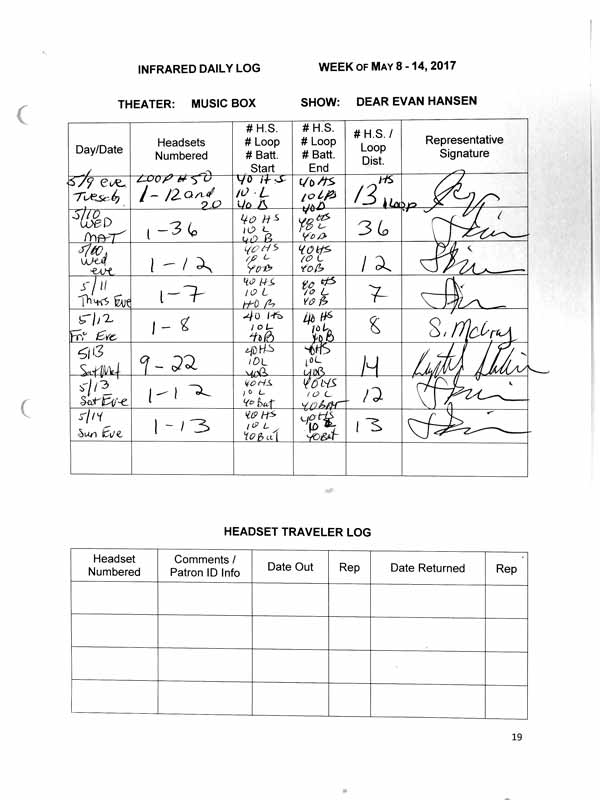 INFRARED DAILY LOG WEEK OF MAY 8 - 14, 2017
THEATER: MUSIC BOX SHOW: DEAR EVAN HANSEN
Day/Date
Headsets
Numbered
# H.S.
# Loop
# Batt.
Start
# H.S.
# Loop
# Batt.
End
# H.S. /
Loop
Dist.
Representative
Signature
5/9 eve
Tuesday
LOOP #50
1-12 and
20
40 HS
10 L
40 B
40 HS
10 LP
40 B
13 HS
1 loop
5/10
WED
MAT
1-36
40 HS
10 L
40 B
40 HS
L
40 B
36
5/10
Wed
eve
1-12
40 HS
10 L
40 B
40 HS
10 L
40 B
12
5/11
Thurs Eve
1-7
40 HS
10 L
40 B
40 HS
10 L
40 B
7
5/12
Fri Eve
1-8
40 HS
10 L
40 B
40 HS
10 L
40 B
8
5/13
Sat Mat
9-22
40 HS
10 L
40 B
40 HS
10 L
40 B
14
5/13
Sat Eve
1-12
40 HS
10 L
40 Bat
40 HS
10 L
40 BAT
12
5/14
Sun Eve
1-13
40 HS
10 L
40 Bat
40 HS
10 L
40 Bat
13
HEADSET TRAVELER LOG
Headset
Numbered
Comments /
Patron ID Info
Date Out
Rep
Date Returned
Rep
19